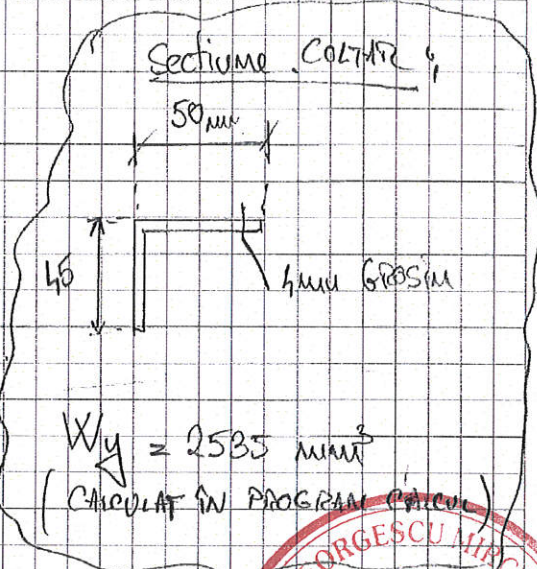 Secțiune "COLȚAR"
50 mm
45
4 mm GROSIM
Wy = 2535 mm³
(CALCULAT ÎN PROGRAM CALCUL)
ORGESCU MIRC